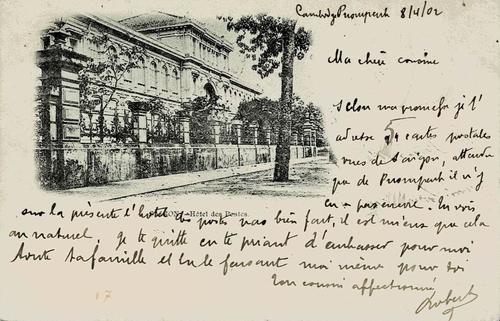 Cambodge Pnompenh 8/4/02
Ma chère cousine
Selon ma promesse je t'
adresse 5 cartes postales
vues de Saigon, attendu
que de Pnompenh il n'y
en a pas encore. Tu vois
SAIGON - Hôtel des Postes.
sur la présente l'hotel des postes pas bien fait, il est mieux que cela
au naturel. Je te quitte en te priant d'embrasser pour moi
toute ta famille et en le faisant moi même pour toi
Ton cousin affectionné
Robert
17